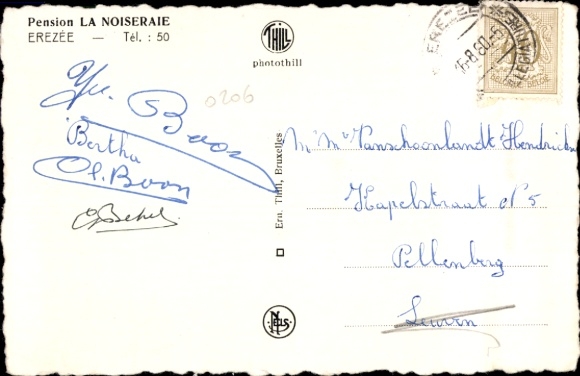 Pension LA NOISERAIE
EREZÉE — Tél. : 50
THILL
photothill
EREZEE
16-8-60
BELGIQUE-BELGIE
0206
Yv. Boon
Bertha
Ol. Boon
Ern. Thill, Bruxelles
NELS
Mr Mme Vanschoonlandt Hendrickx
Kapelstraat No 5
Pellenberg
Leuven